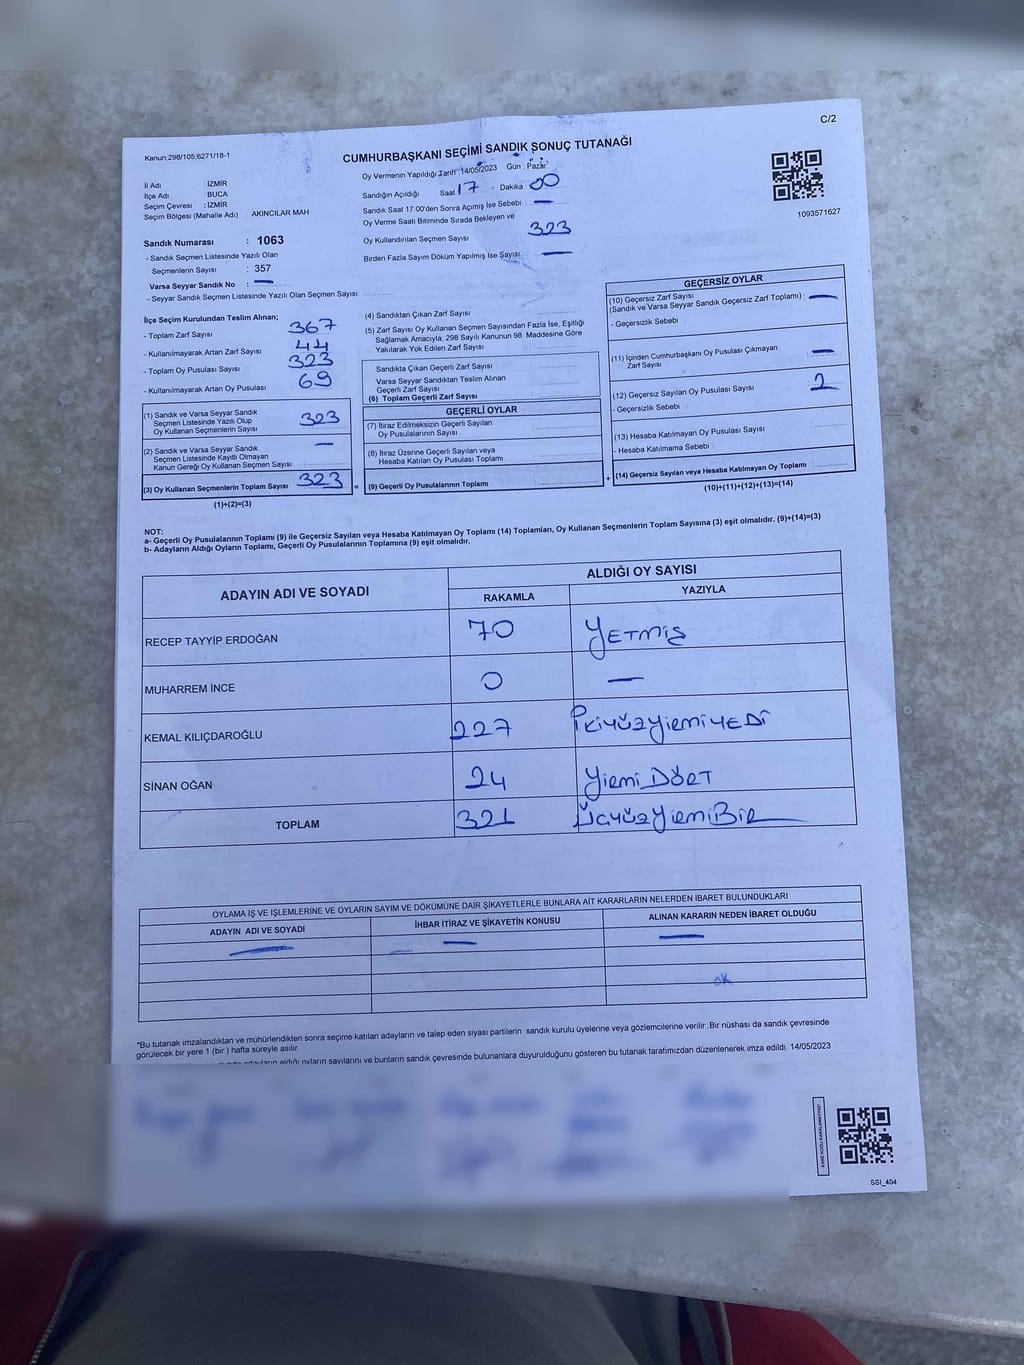 C/2
Kanun:298/105;6271/18-1
CUMHURBAŞKANI SEÇİMİ SANDIK SONUÇ TUTANAĞI
Oy Vermenin Yapıldığı Tarih 14/05/2023 Gün : Pazar
İl Adı : İZMİR
İlçe Adı : BUCA
Seçim Çevresi : İZMİR
Seçim Bölgesi (Mahalle Adı) : AKINCILAR MAH
Sandığın Açıldığı Saat 17 Dakika 00
Sandık Saat 17:00'den Sonra Açımış İse Sebebi : —
Oy Verme Saati Bitiminde Sırada Bekleyen ve
Oy Kullandırılan Seçmen Sayısı 323
Birden Fazla Sayım Döküm Yapılmış İse Sayısı —
1093571627
Sandık Numarası : 1063
- Sandık Seçmen Listesinde Yazılı Olan
Seçmenlerin Sayısı : 357
Varsa Seyyar Sandık No : —
- Seyyar Sandık Seçmen Listesinde Yazılı Olan Seçmen Sayısı:
İlçe Seçim Kurulundan Teslim Alınan;
- Toplam Zarf Sayısı 367
- Kullanılmayarak Artan Zarf Sayısı 44
- Toplam Oy Pusulası Sayısı 323
- Kullanılmayarak Artan Oy Pusulası 69
(1) Sandık ve Varsa Seyyar Sandık
Seçmen Listesinde Yazılı Olup
Oy Kullanan Seçmenlerin Sayısı 323
(2) Sandık ve Varsa Seyyar Sandık
Seçmen Listesinde Kayıtlı Olmayan
Kanun Gereği Oy Kullanan Seçmen Sayısı —
(3) Oy Kullanan Seçmenlerin Toplam Sayısı 323 =
(1)+(2)=(3)
(4) Sandıktan Çıkan Zarf Sayısı
(5) Zarf Sayısı Oy Kullanan Seçmen Sayısından Fazla İse, Eşitliği
Sağlamak Amacıyla; 298 Sayılı Kanunun 98. Maddesine Göre
Yakılarak Yok Edilen Zarf Sayısı
Sandıkta Çıkan Geçerli Zarf Sayısı
Varsa Seyyar Sandıktan Teslim Alınan
Geçerli Zarf Sayısı
(6) Toplam Geçerli Zarf Sayısı
GEÇERLİ OYLAR
(7) İtiraz Edilmeksizin Geçerli Sayılan
Oy Pusulalarının Sayısı
(8) İtiraz Üzerine Geçerli Sayılan veya
Hesaba Katılan Oy Pusulası Toplamı
(9) Geçerli Oy Pusulalarının Toplamı +
GEÇERSİZ OYLAR
(10) Geçersiz Zarf Sayısı
(Sandık ve Varsa Seyyar Sandık Geçersiz Zarf Toplamı) : —
- Geçersizlik Sebebi :
(11) İçinden Cumhurbaşkanı Oy Pusulası Çıkmayan
Zarf Sayısı —
(12) Geçersiz Sayılan Oy Pusulası Sayısı 2
- Geçersizlik Sebebi :
(13) Hesaba Katılmayan Oy Pusulası Sayısı
- Hesaba Katılmama Sebebi :
(14) Geçersiz Sayılan veya Hesaba Katılmayan Oy Toplamı :
(10)+(11)+(12)+(13)=(14)
NOT:
a- Geçerli Oy Pusulalarının Toplamı (9) ile Geçersiz Sayılan veya Hesaba Katılmayan Oy Toplamı (14) Toplamları, Oy Kullanan Seçmenlerin Toplam Sayısına (3) eşit olmalıdır. (9)+(14)=(3)
b- Adayların Aldığı Oyların Toplamı, Geçerli Oy Pusulalarının Toplamına (9) eşit olmalıdır.
ADAYIN ADI VE SOYADI ALDIĞI OY SAYISI
RAKAMLA YAZIYLA
RECEP TAYYİP ERDOĞAN 70 YETMİŞ
MUHARREM İNCE 0 —
KEMAL KILIÇDAROĞLU 227 İKİYÜZYİRMİYEDİ
SİNAN OĞAN 24 YİRMİ DÖRT
TOPLAM 321 ÜÇYÜZYİRMİBİR
OYLAMA İŞ VE İŞLEMLERİNE VE OYLARIN SAYIM VE DÖKÜMÜNE DAİR ŞİKAYETLERLE BUNLARA AİT KARARLARIN NELERDEN İBARET BULUNDUKLARI
ADAYIN ADI VE SOYADI İHBAR İTİRAZ VE ŞİKAYETİN KONUSU ALINAN KARARIN NEDEN İBARET OLDUĞU
— — —
OK
*Bu tutanak imzalandıktan ve mühürlendikten sonra seçime katılan adayların ve talep eden siyasi partilerin sandık kurulu üyelerine veya gözlemcilerine verilir .Bir nüshası da sandık çevresinde
görülecek bir yere 1 (bir ) hafta süreyle asılır.
adayların aldığı oyların sayılarını ve bunların sandık çevresinde bulunanlara duyurulduğunu gösteren bu tutanak tarafımızdan düzenlenerek imza edildi. 14/05/2023
KARE KODU KARALAMAYINIZ!
SSİ_404